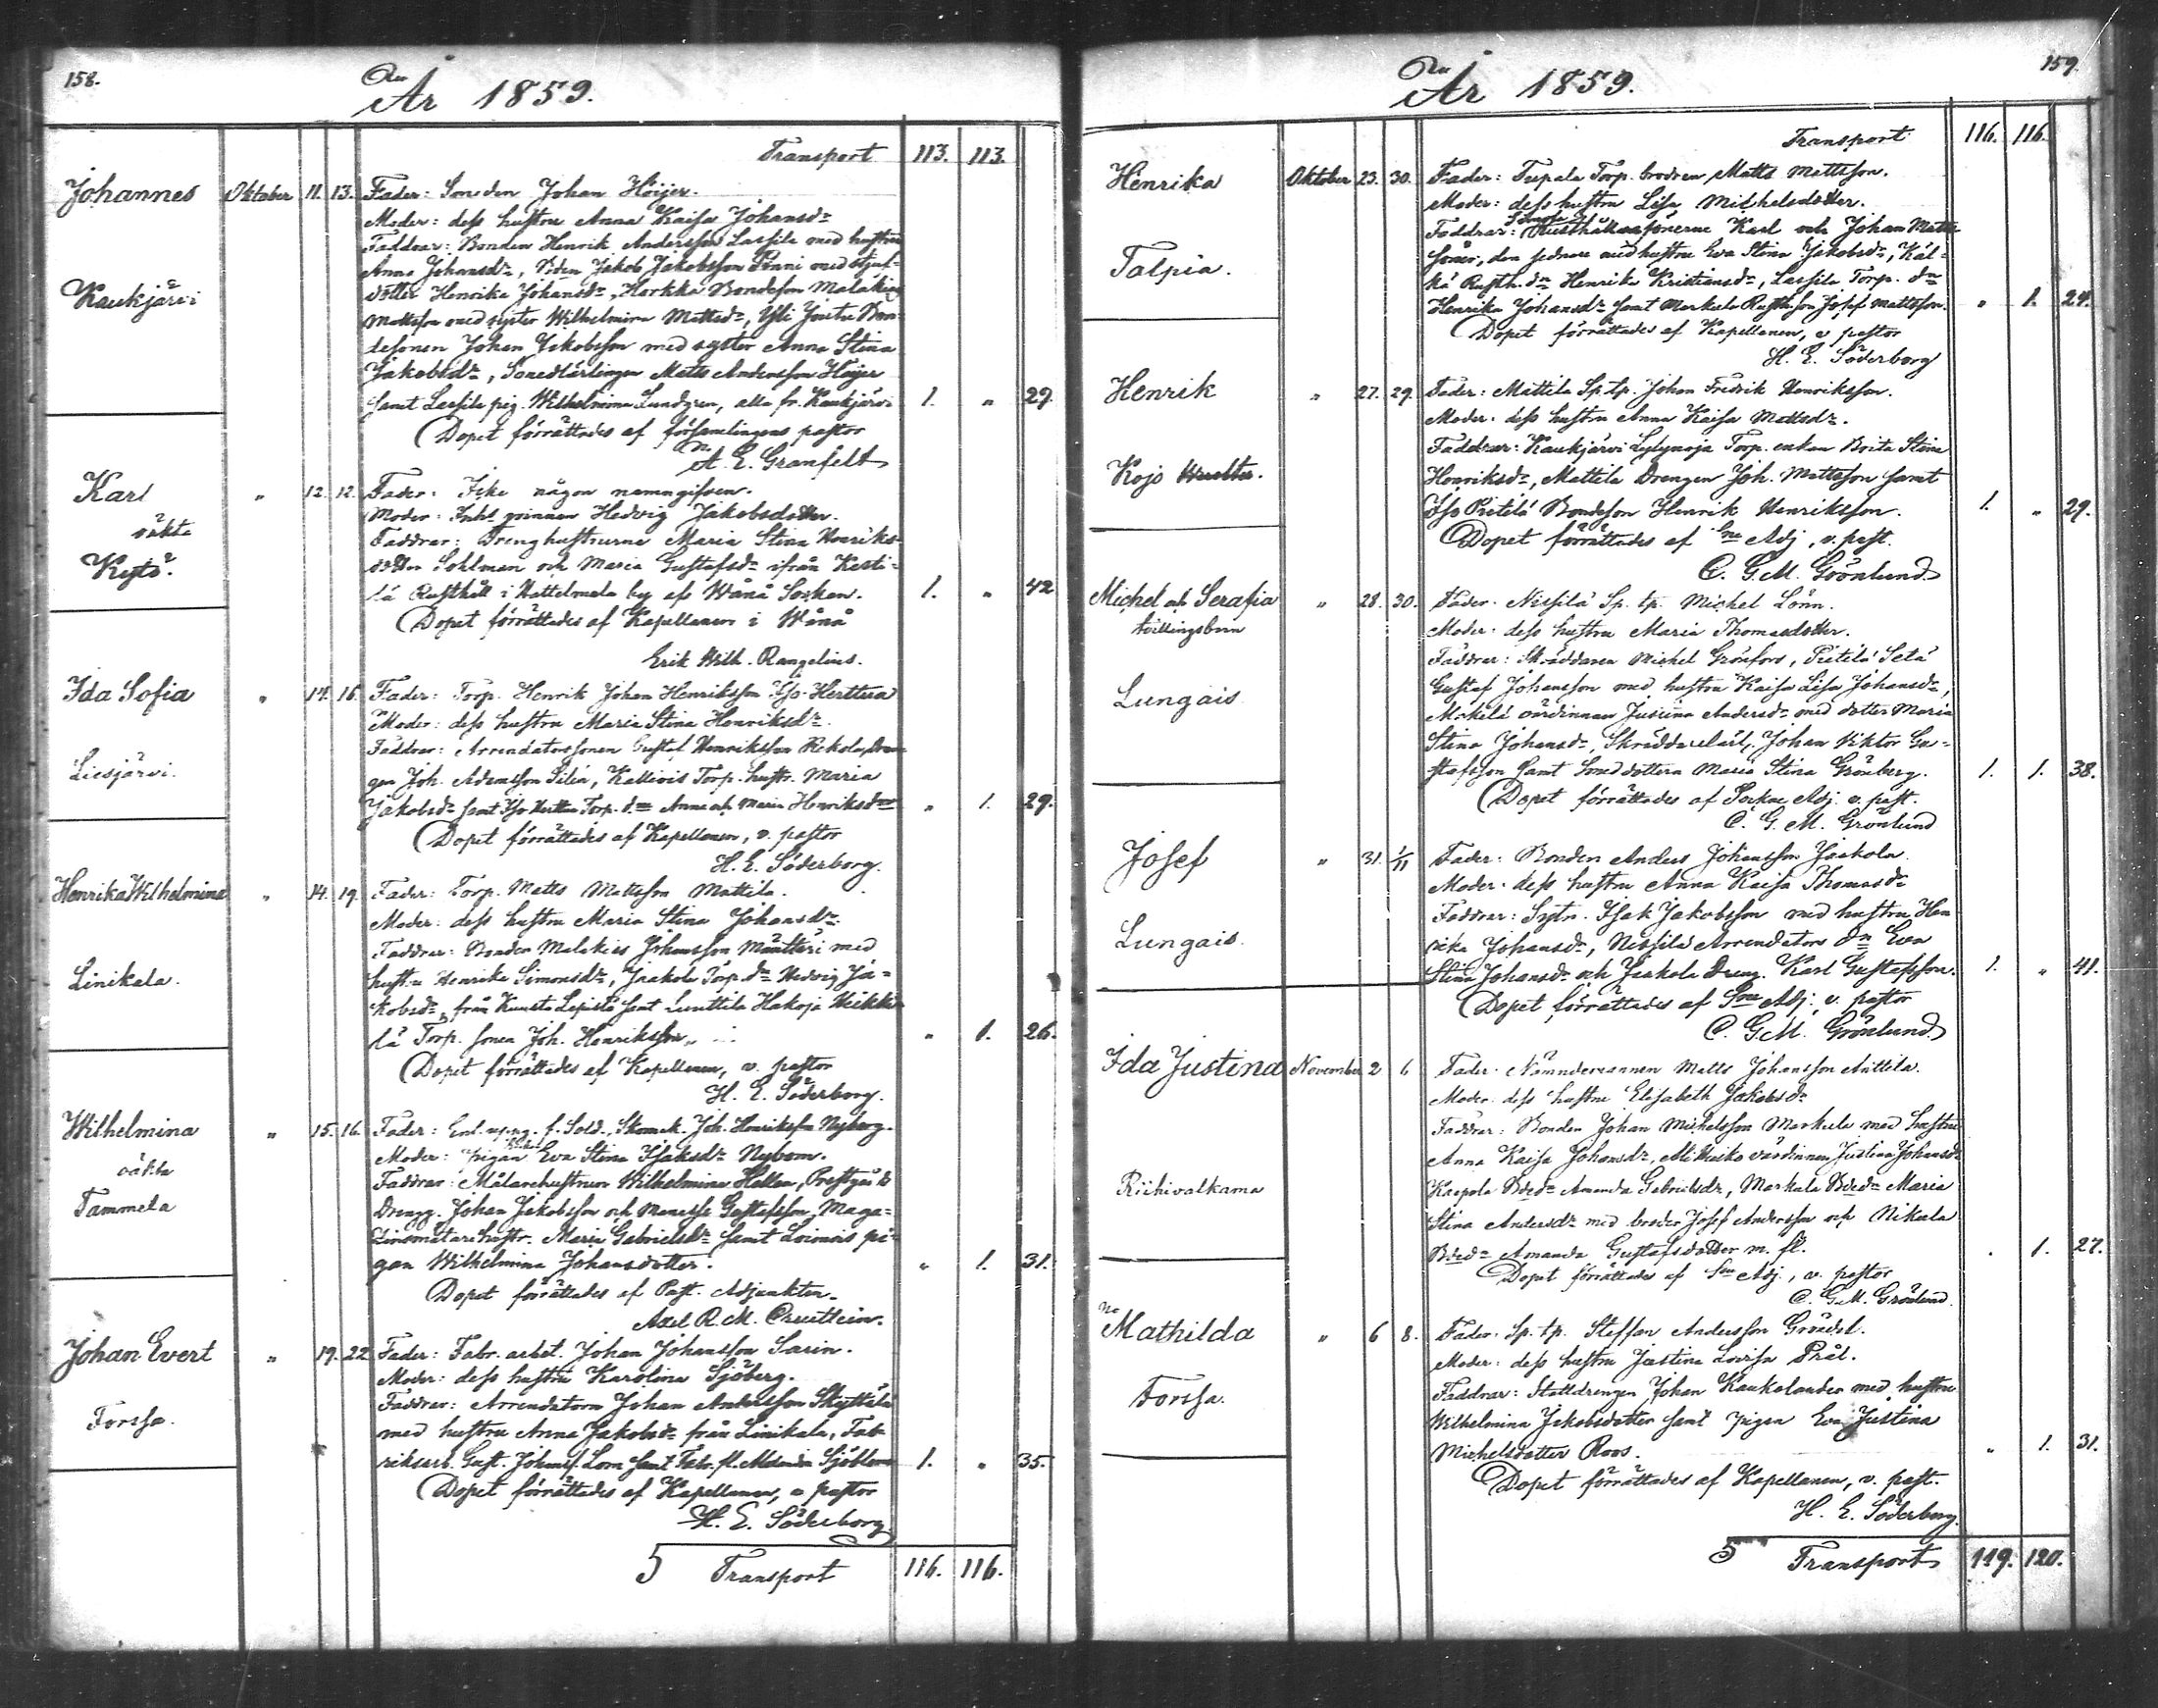 158.
År 1859.
Transport 113. 113.
Johannes Oktober 11. 13. Fader: Smeden Johan Höijer.
Moder: dess hustru Anna Kaisa Johansdr
Faddrar: Bonden Henrik Andersson Lassila med hustru
Anna Johansdr, Bden Jakob Jakobsson Penni med stjuf-
Kaukjärvi
dotter Henrika Johansdr, Horkka Bondeson Malakias
Mattsson med syster Wilhelmina Mattsdr, Yli Jouta Bon-
desonen Johan Jakobsson med syster Anna Stina
Jakobsdr, Smedlärlingen Matts Andersson Höijer
samt Lassila pig. Wilhelmina Lundgren, alla fr. Kaukjärvi 1. " 29.
Dopet förrättades af församlingens pastor
A. E. Granfelt
Karl " 12. 12. Fader: Icke någon namngifven.
oäkta
Moder: Inhs qvinnan Hedvig Jakobsdotter.
Faddrar: Drenghustrurna Maria Stina Henriks-
Kytö.
dotter Sohlman och Maria Gustafsdr ifrån Kesti-
lä Rusthåll i Hattelmala by af Wånå Socken. 1. " 42
Dopet förrättades af Kapellanen i Wånå
Erik Wilh. Rangelius.
Ida Sofia " 14. 16. Fader: Torp. Henrik Johan Henriksson Iso-Herttua
Moder: dess hustru Maria Stina Henriksdr.
Faddrar: Arrendatorssonen Gustaf Henriksson Kekola, Dren-
Liesjärvi.
gen Joh. Adamsson Silén, Kalliois Torp. hustr. Maria
Jakobsdr samt Iso Herttua Torp. drar Anna och Maria Henriksdrar " 1. 29.
Dopet förrättades af Kapellanen, v. pastor
H. E. Söderborg.
Henrika Wilhelmina " 14. 19. Fader: Torp. Matts Mattsson Mattila.
Moder: dess hustru Maria Stina Johansdr.
Faddrar: Bonden Malakias Johansson Mänttäri med
Linikala.
hustru Henrika Simonsdr, Jaakola Torp. dr Hedvig Ja-
kobsdr, från Kuusto Lepistö samt Lunttila Hakoja Heikki-
lä Torp. sonen Joh. Henriksson. " 1. 26.
Dopet förrättades af Kapellanen, v. pastor
H. E. Söderborg.
Wilhelmina " 15. 16. Fader: Enl. uppg. f. Sold., Skomak. Joh. Henriksson Nyberg.
oäkta
Moder: pigan Eva Stina Isaksdr Nybom.
Faddrar: Målarehustrun Wilhelmina Hellen, Prestgårds
Tammela
Drengg. Johan Jakobsson och Manasse Gustafsson, Maga-
zinsmätarehustr. Maria Gabrielsdr samt Loimois pi-
gan Wilhelmina Johansdotter. " 1. 31.
Dopet förrättades af Past. Adjunkten.
Axel R. M. Creutlein.
Johan Evert " 19. 22 Fader: Fabr. arbet. Johan Johansson Sarin.
Moder: dess hustru Karolina Sjöberg.
Faddrar: Arrendatorn Johan Andersson Skyttälä
Forssa.
med hustru Anna Jakobsdr från Linikala, Fab-
riksarb. Gust. Johanss. Lorn samt Fabr. fl. Matilda Sjöblom 1. " 35.
Dopet förrättades af Kapellanen, v pastor
H. E. Söderborg
5 Transport 116. 116.
159.
År 1859.
Transport 116. 116.
Henrika Oktober 23. 30. Fader: Tupala Torp. brodren Matts Mattsson.
Moder: dess hustru Lisa Michelsdotter.
Faddrar: Rusthållaresönerne Karl och Johan Matts-
Talpia.
söner, den sednare med hustru Eva Stina Jakobsdr, Käl-
kä Rusth. dr Henrika Kristiansdr, Lassila Torp. dr
Henrika Johansdr samt Markula Rusth. son Josef Mattsson. " 1. 24.
Dopet förrättades af Kapellanen, v pastor
H. E. Söderborg
Henrik " 27. 29. Fader: Mattila Sp. tp. Johan Fredrik Henriksson.
Moder: dess hustru Anna Kaisa Mattsdr.
Faddrar: Kaukjärvi Lylynoja Torp. enkan Brita Stina
Kojo
Henriksdr, Mattila Drengen Joh. Mattsson samt
Iso Pietilä Bondeson Henrik Henriksson. 1. " 29.
Dopet förrättades af Sne Adj, v. past.
C. G. M. Grönlund
Michel och Serafia " 28. 30. Fader: Nissilä Sp. tp. Michel Lönn.
tvillingsbarn
Moder: dess hustru Maria Thomasdotter.
Faddrar: Skräddaren Michel Grönfors, Pietilä Setä
Lungais
Gustaf Johansson med hustru Kaisa Lisa Johansdr,
Mäkelä värdinnan Justina Andersdr med dotter Maria
Stina Johansdr, Skräddarelärl. Johan Viktor Gu-
stafsson samt Smeddottern Maria Stina Grönberg. 1. 1. 38.
Dopet förrättades af Sockne Adj. v. past.
C. G. M. Grönlund
Josef " 31. 1/11 Fader: Bonden Anders Johansson Jaakola.
Moder: dess hustru Anna Kaisa Thomasdr
Faddrar: Sytn. Isak Jakobsson med hustru Hen
Lungais.
rika Johansdr, Nissilä Arrendators dr Eva
Stina Johansdr och Jaakola Dreng. Karl Gustafsson. 1. " 41.
Dopet förrättades af Sne Adj. v. pastor
C. G. M. Grönlund
Ida Justina November 2 6 Fader: Nämndemannen Matts Johansson Anttila.
Moder: dess hustru Elisabeth Jakobsdr
Faddrar: Bonden Johan Michelsson Markula med hustru
Anna Kaisa Johansdr, Ali Heiko värdinnan Justina Johansdr
Riihivalkama
Kaupola Bdedr Amanda Gabrielsdr, Markula Bdedr Maria
Stina Andersdr med broder Josef Andersson och Nikula
Bdedr Amanda Gustafsdotter m. fl. . 1. 27.
Dopet förrättades af Sne Adj., v. pastor
C. G. M. Grönlund.
Mathilda " 6 8. Fader: Sp. tp. Steffan Andersson Gröndal.
Moder: dess hustru Justina Lovisa Prål.
Forssa.
Faddrar: Stalldrengen Johan Kaukolander med hustru
Wilhelmina Jakobsdotter samt pigan Eva Justina
Michelsdotter Roos. " 1. 31.
Dopet förrättades af Kapellanen, v. past.
H. E. Söderborg.
5 Transport 119. 120.